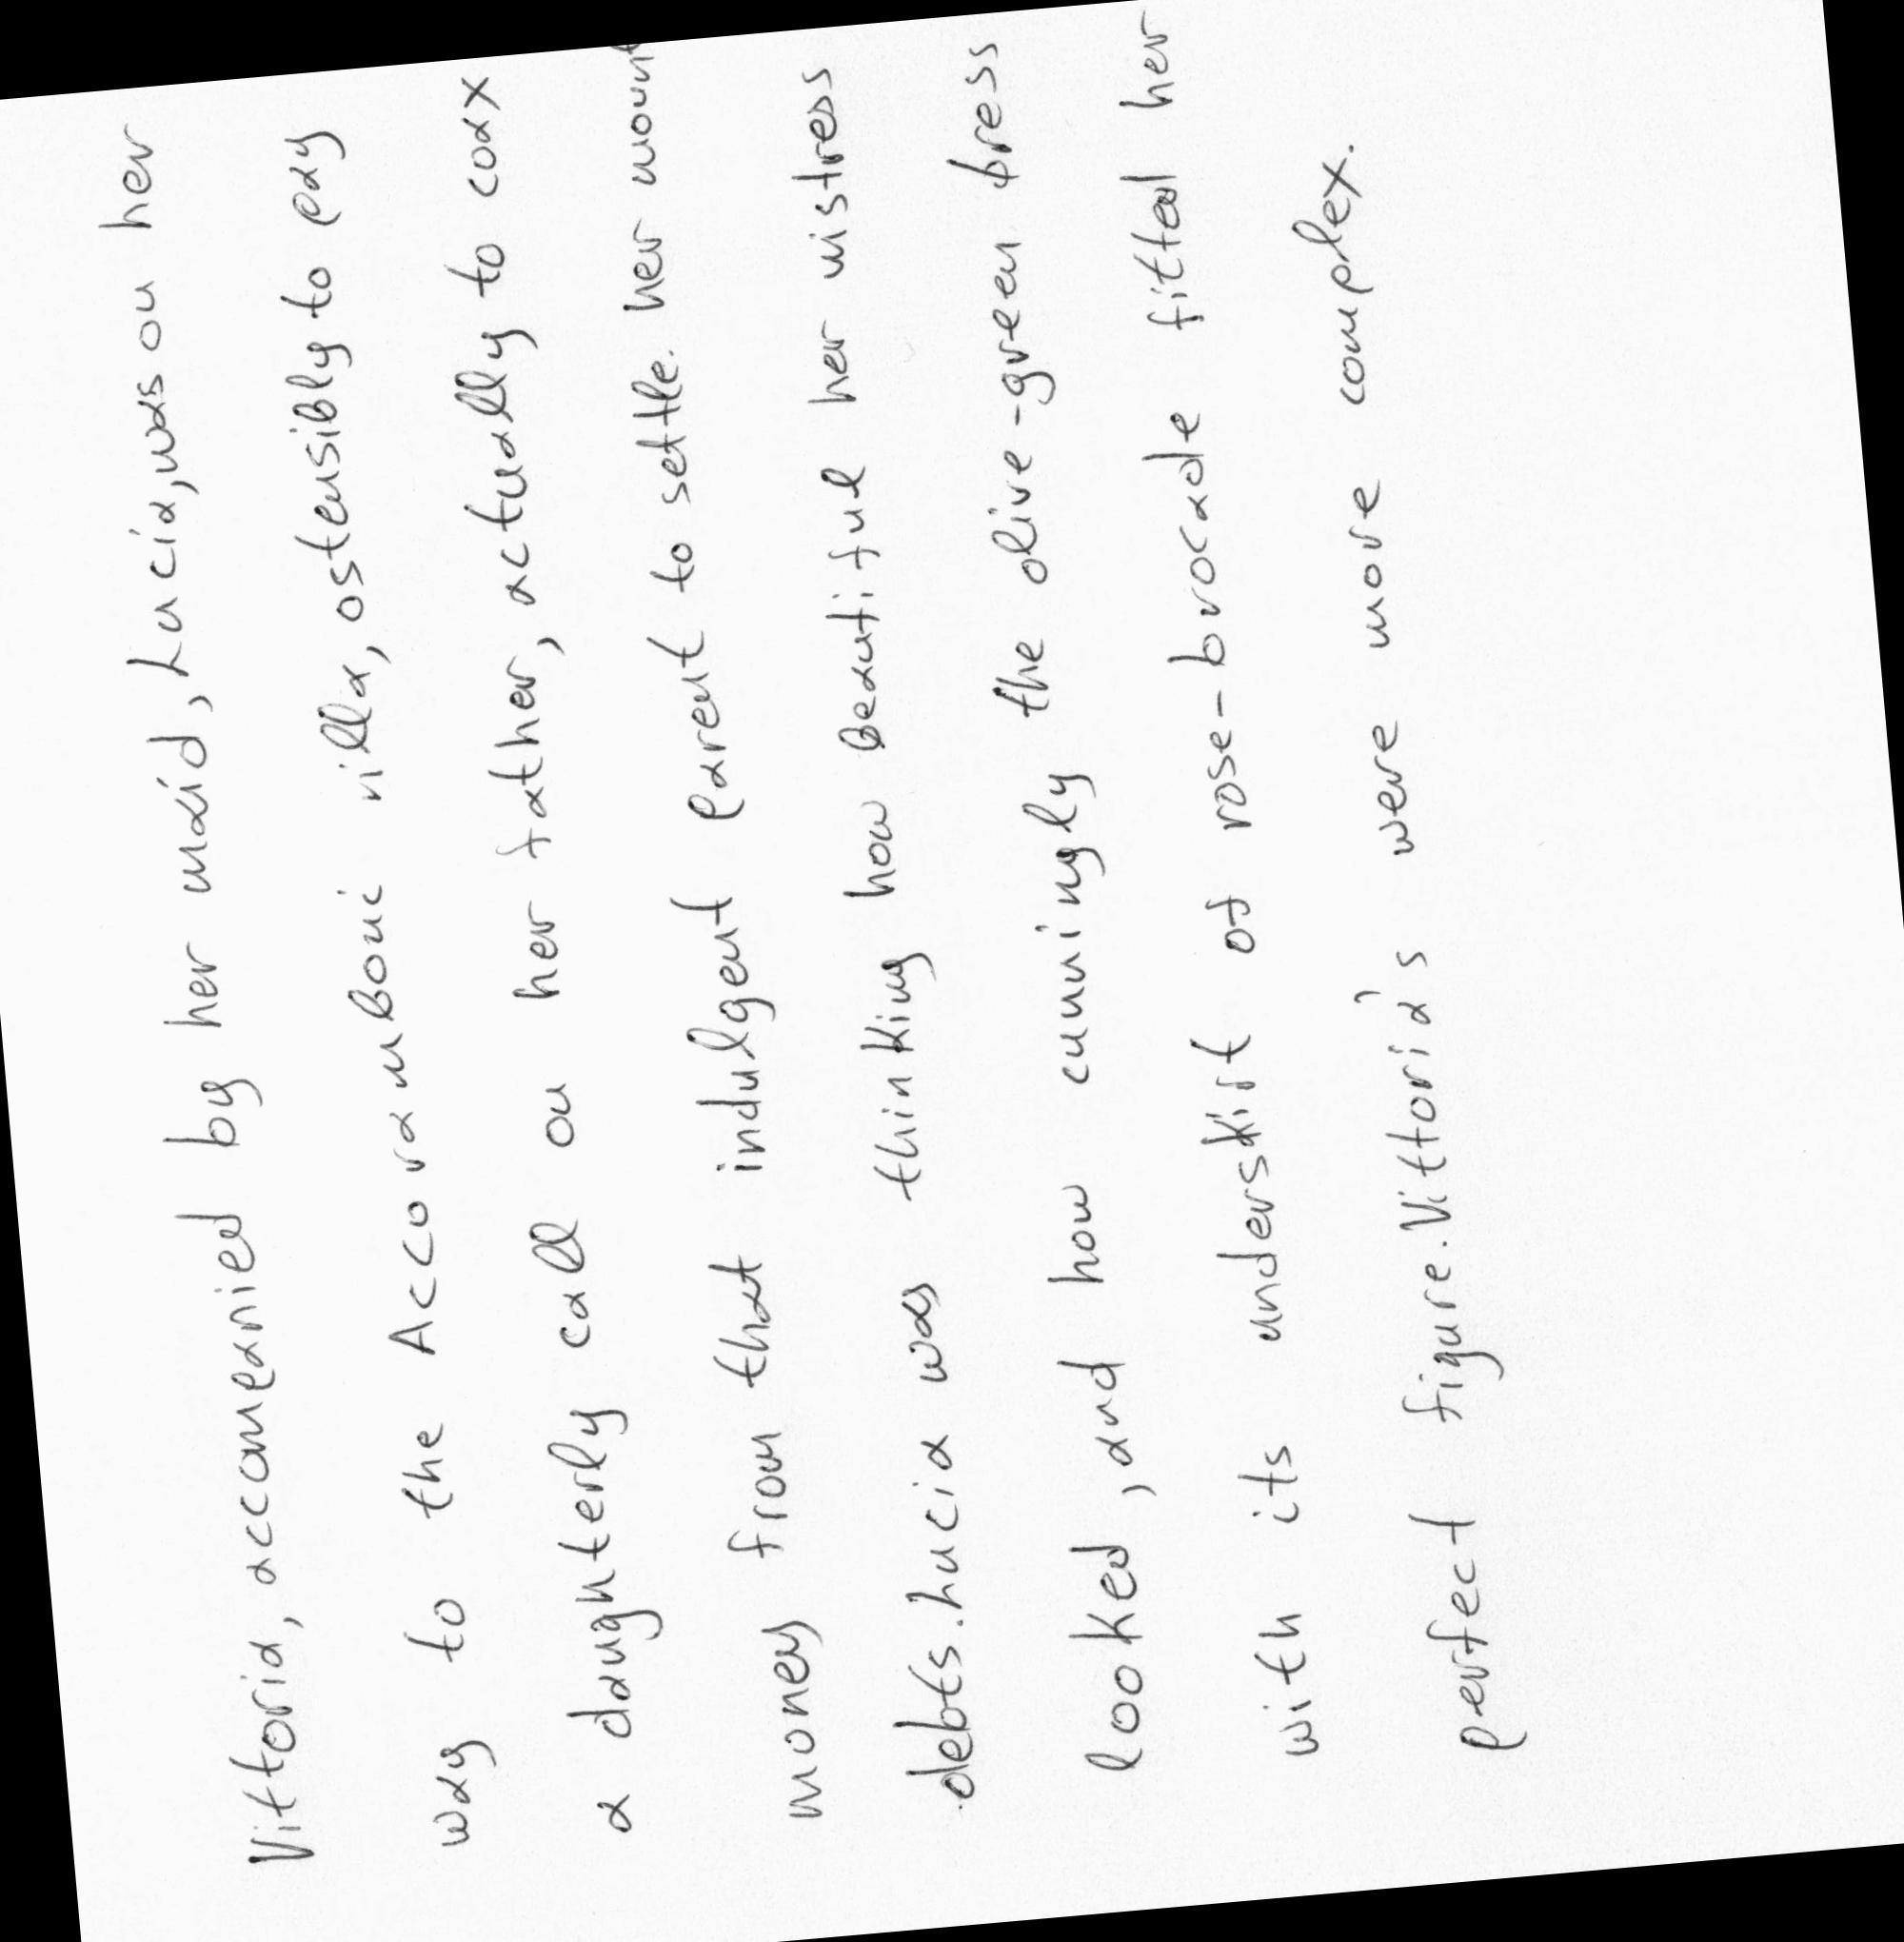 Vittoria, accompanied by her maid, Lucia, was on her
way to the Accoramboni villa, ostensibly to pay
a daughterly call on her father, actually to coax
money from that indulgent parent to settle. her mount
debts. Lucia was thinking how beautiful her mistress
looked, and how cunningly the olive-green dress
with its underskirt of rose-brocade fitted her
perfect figure. Vittoria's were more complex.